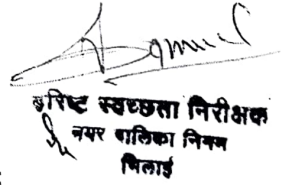 वरिष्ट स्वच्छता निरीक्षक
नगर पालिका निगम
भिलाई